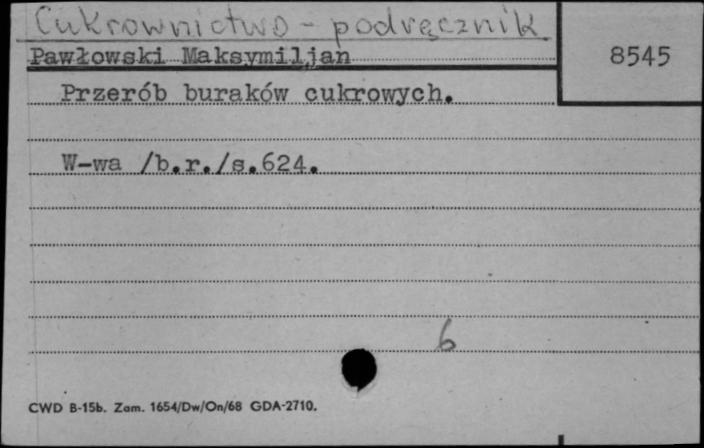 Cukrownictwo - podręcznik
Pawłowski Maksymiljan
8545
Przerób buraków cukrowych.
W-wa /b.r./s.624.
6
CWD B-15b. Zam. 1654/Dw/On/68 GDA-2710.